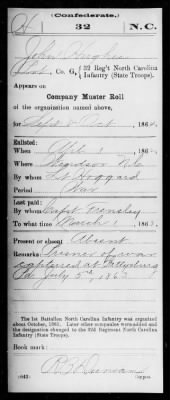 (Confederate.)
H 32 N.C.
John Hughes
Co. G, 32 Reg't North Carolina Infantry (State Troops).
Appears on
Company Muster Roll
of the organization named above,
for Sept & Oct, 186
Enlisted:
When 186
Where N.C.
By whom Lt Hoggard
Period War
Last paid:
By whom Capt
To what time March 1, 186
Present or absent Absent
Remarks: Prisoner of war
captured at Gettysburg
Pa July 5th, 1863
The 1st Battalion North Carolina Infantry was organized
about October, 1861. Later other companies were added and
the designation changed to the 32d Regiment North Carolina
Infantry (State Troops).
Book mark:
(642)
Copyist.